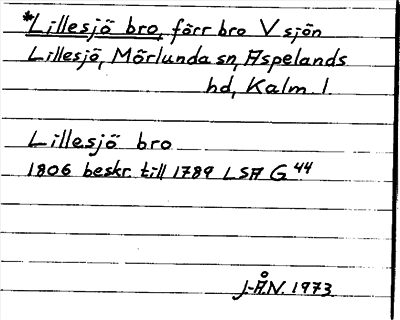 *Lillesjö bro, förr bro V sjön
Lillesjö, Mörlunda sn, Aspelands
hd, Kalm. l
Lillesjö bro
1806 beskr. till 1789 LSA G 44
J-Å.N. 1973